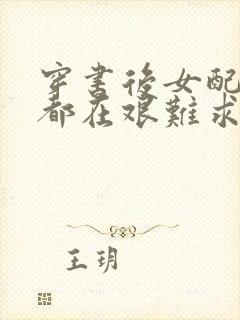 穿書後女配
都在艰難求
王玥